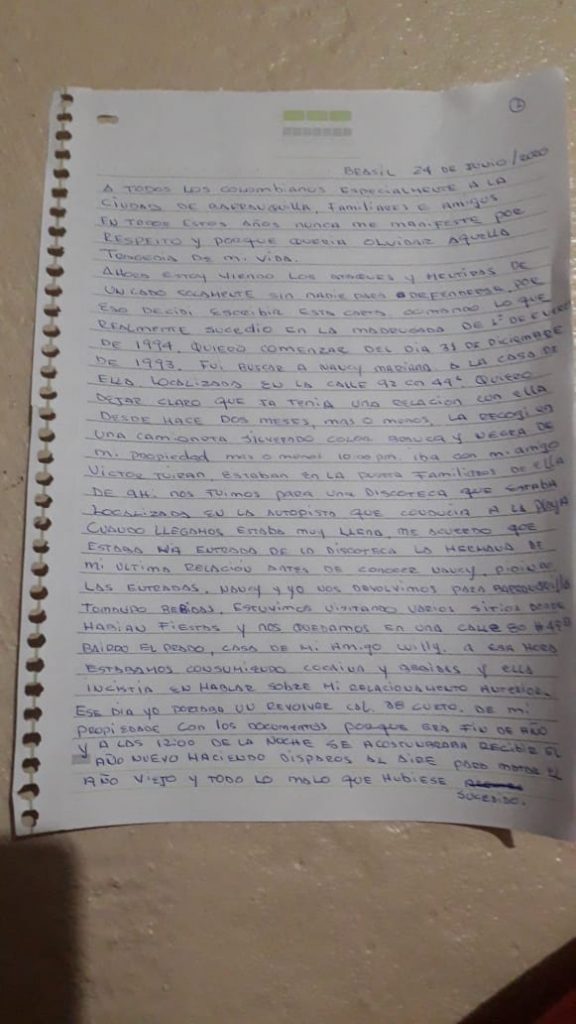 1
BRASIL 24 DE JUNIO/2020
A TODOS LOS COLOMBIANOS ESPECIALMENTE A LA
CIUDAD DE BARRANQUILLA, FAMILIARES E AMIGOS
EN TODOS ESTOS AÑOS NUNCA ME MANIFESTE POR
RESPETO Y PORQUE QUERIA OLVIDAR AQUELLA
TRAGEDIA DE MI VIDA.
AHORA ESTOY VIENDO LOS ATAQUES Y MENTIRAS DE
UN LADO SOLAMENTE SIN NADIE PARA DEFENDERSE, POR
ESO DECIDI ESCRIBIR ESTA CARTA CONTANDO LO QUE
REALMENTE SUCEDIO EN LA MADRUGADA DE 1º DE ENERO
DE 1994. QUIERO COMENZAR DEL DIA 31 DE DICIEMBRE
DE 1993. FUI BUSCAR A NANCY MARIANA A LA CASA DE
ELLA LOCALIZADA EN LA CALLE 92 CON 49C. QUIERO
DEJAR CLARO QUE YA TENIA UNA RELACION CON ELLA
DESDE HACE DOS MESES, MAS O MENOS, LA RECOGI EN
UNA CAMIONETA SILVERADO COLOR BLANCA Y NEGRA DE
MI PROPIEDAD MAS O MENOS 10:00 PM. IBA CON MI AMIGO
VICTOR ESTABAN EN LA PUERTA FAMILIARES DE ELLA
DE AHI NOS FUIMOS PARA UNA DISCOTECA QUE ESTABA
LOCALIZADA EN LA AUTOPISTA QUE CONDUCIA A LA PLAYA
CUANDO LLEGAMOS ESTABA MUY LLENA, ME ACUERDO QUE
ESTABA NA ENTRADA DE LA DISCOTECA LA HERMANA DE
MI ULTIMA RELACION ANTES DE CONOCER NANCY, PIDIENDO
LAS ENTRADAS. NANCY Y YO NOS DEVOLVIMOS PARA BARRANQUILLA
TOMANDO BEBIDAS, ESTUVIMOS VISITANDO VARIOS SITIOS DONDE
HABIAN FIESTAS Y NOS QUEDAMOS EN UNA CALLE 80 #
BAIRRO EL PRADO, CASA DE MI AMIGO WILLY. A ESA HORA
ESTABAMOS CONSUMIENDO COCAINA Y BEBIDAS Y ELLA
INCISTIA EN HABLAR SOBRE MI RELACIONAMENTO ANTERIOR.
ESE DIA YO PORTABA UN REVOLVER CAL. 38 CURTO. DE MI
PROPIEDADE CON LOS DOCUMENTOS PORQUE ERA FIN DE AÑO
Y A LAS 12:00 DE LA NOCHE SE ACOSTUMBRABA RECIBIR EL
AÑO NUEVO HACIENDO DISPAROS AL AIRE PARA MATAR EL
AÑO VIEJO Y TODO LO MALO QUE HUBIESE
SUCEDIDO.